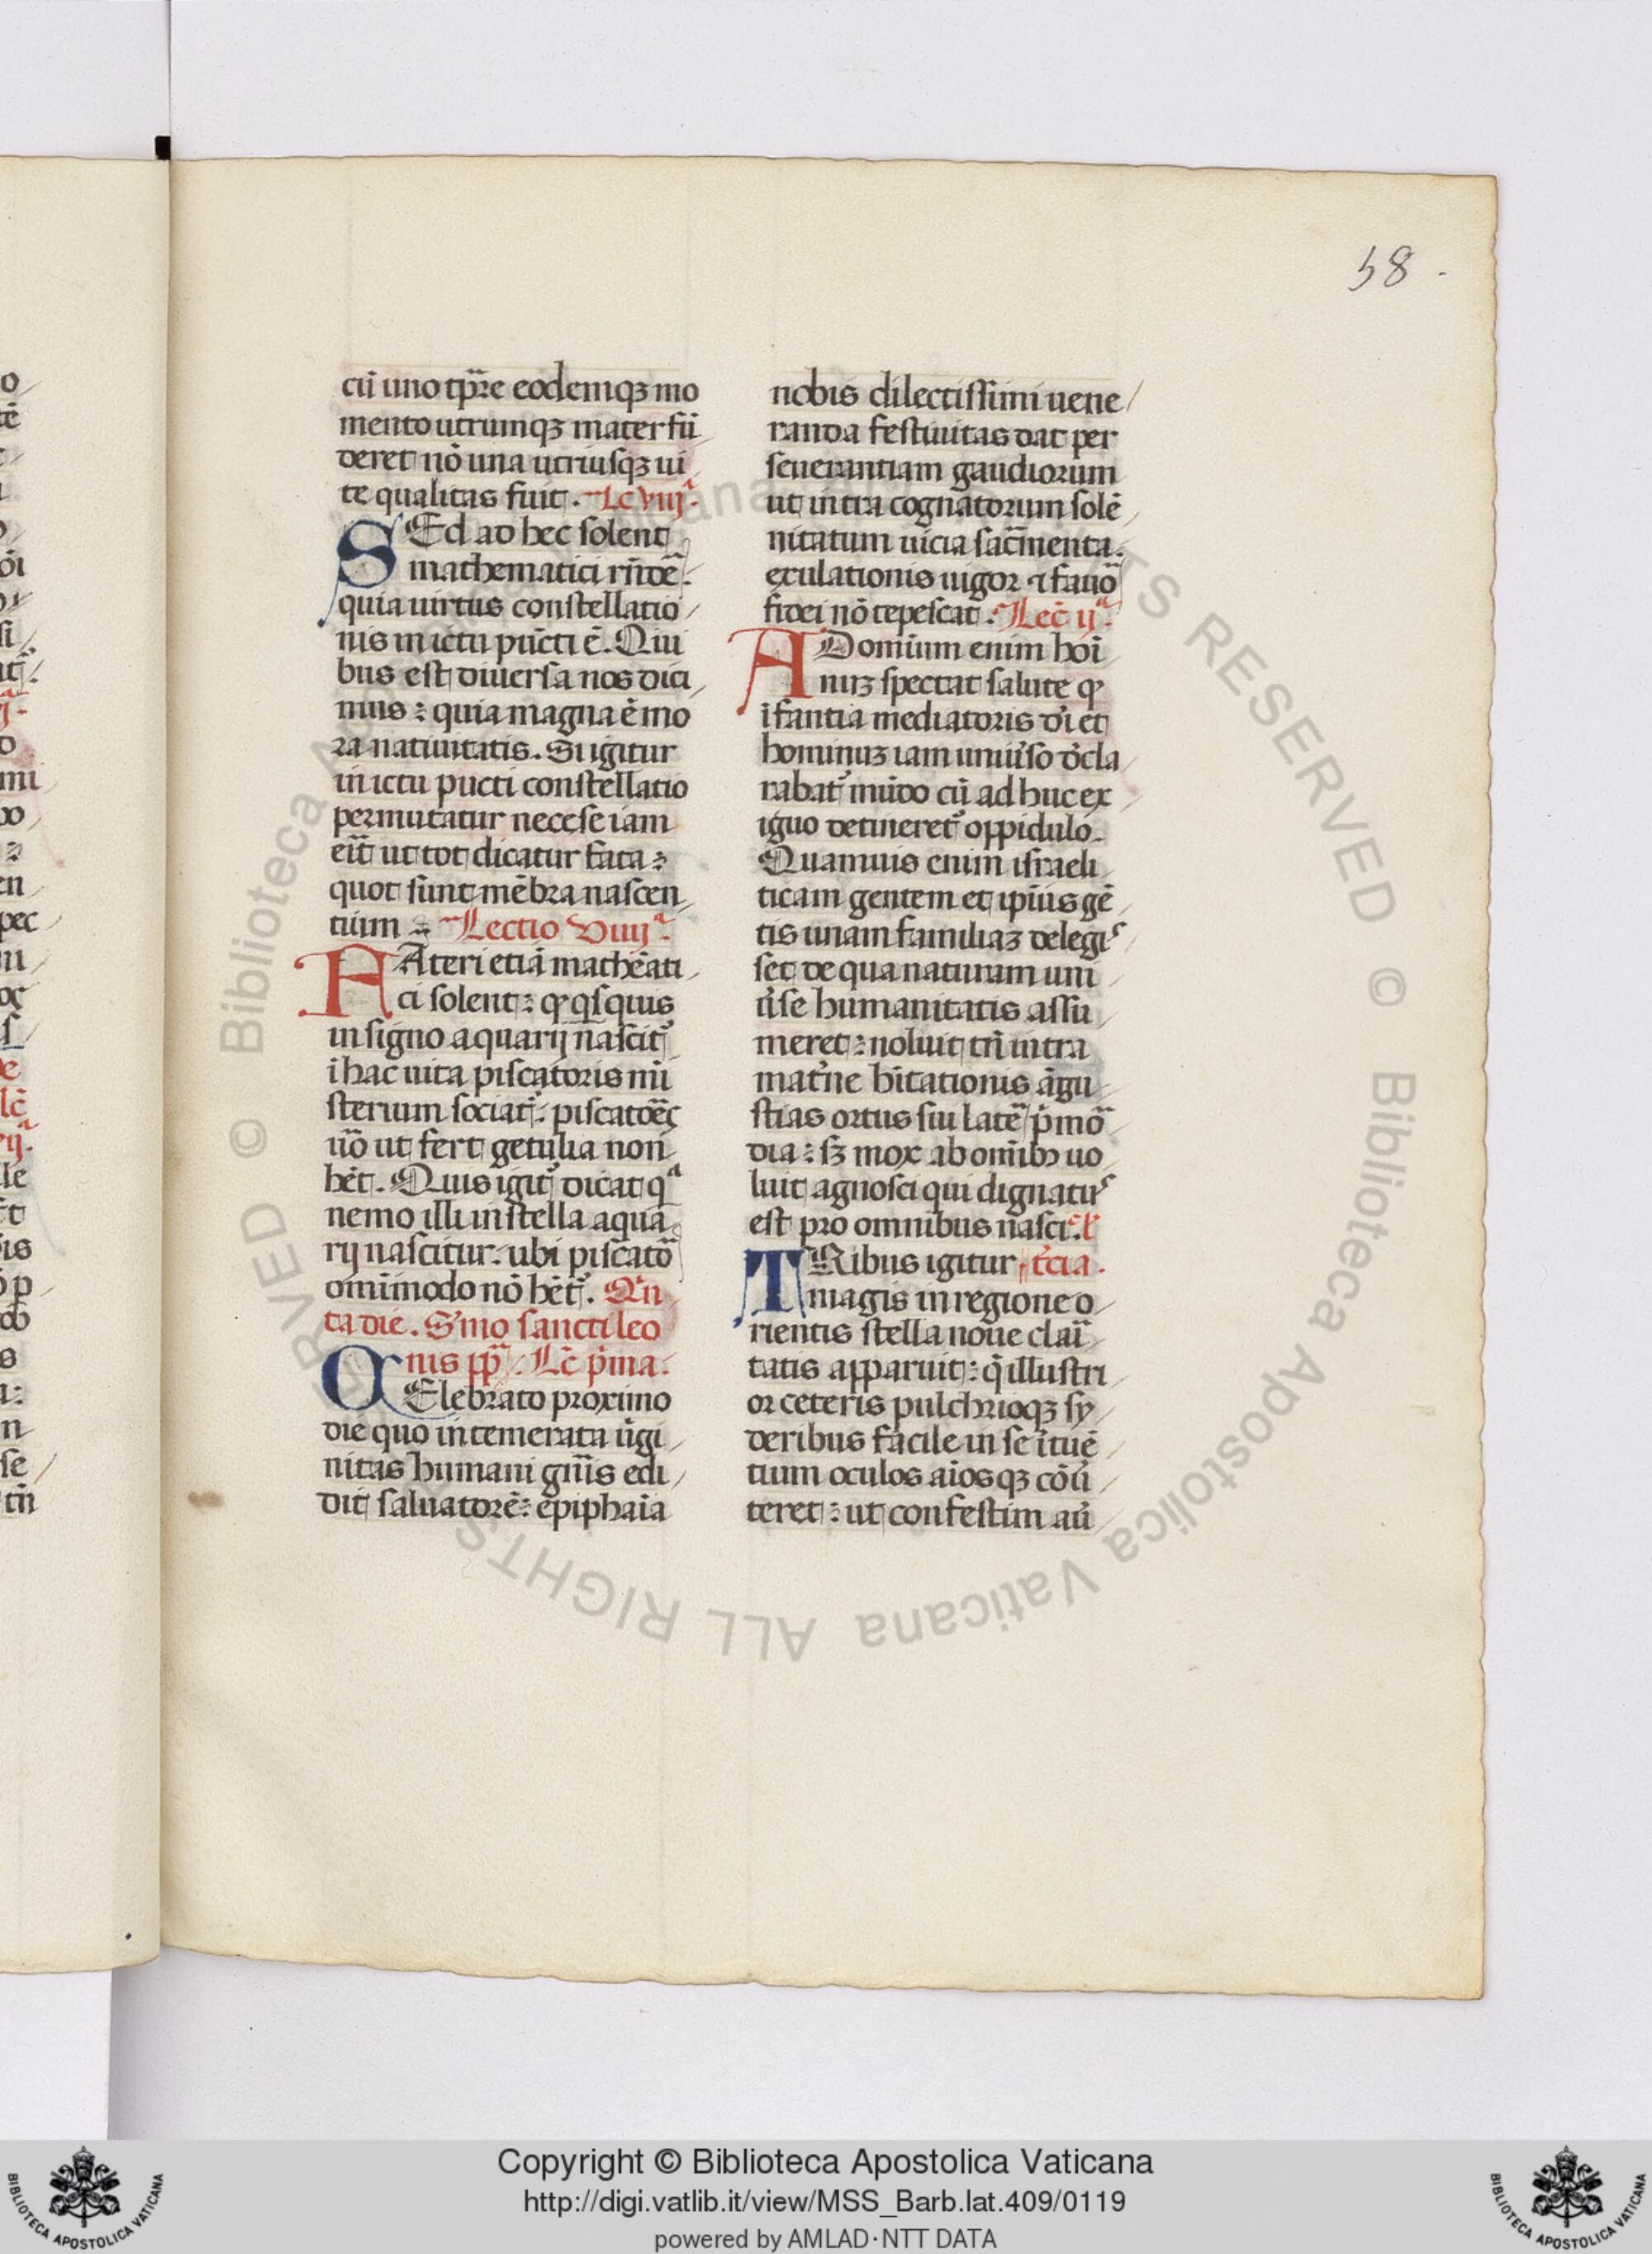 58.
cū uno tp̄re eodemqꝫ mo
mento utrumqꝫ mater fū
deret nō una utriusqꝫ ui
te qualitas fuit. Lc̄ viijᵃ.
SEd ad hec solent
mathematici rn̄dē.
quia uirtus constellatio
nis in ictu pūcti ē. Qui
bus est diuersa nos dici
mus: quia magna ē mo
ra natiuitatis. Si igitur
in ictu pucti constellatio
permutatur necese iam
eīt ut tot dicatur fata:
quot sunt mēbra nascen
tium: Lectio Viiijᵃ.
FAteri etiā mathēati
ci solent: ꝙ qⁱsquis
in signo aquarij nascit᷑
i hac uita piscatoris mi
sterium sociat᷑: piscatōes
uō ut fert getulia non
hēt. Quis igit᷑ dicat qᵃ
nemo illi in stella aqua
rij nascitur: ubi piscatō
omīmodo nō hēt᷑. Qⁱn
ta die. S'mo sancti leo
nis pp̄. Lc̄ pⁱma.
CElebrato proximo
die quo intemerata ūgi
nitas humani gn̄is edi
dit saluatorē: epiphaīa
nobis dilectissimi uene
randa festiuitas dat per
seuerantiam gaudiorum
ut intra cognatorum solē
nitatum uicia sac̄menta.
exulationis uigor ⁊ fauō
fidei nō tepescat. Lec̄ ijᵃ.
ADomium enim hoī
niꝫ spectat salute ꝙ
ifantia mediatoris dī et
hominuꝫ iam uniūso dc̄la
rabat᷑ mūdo cū ad huc ex
iguo detineret᷑ oppidulo.
Quamuis enim israeli
ticam gentem et ipīus gē
tis unam familiaꝫ delegis
set de qua naturam uni
ūse humanitatis assu
meret: noluit tn̄ intra
mat'ne hītationis āgu
stias ortus sui latē pⁱmō
dia: sꝫ mox ab omībꝫ uo
luit agnosci qui dignatus
est pro omnibus nasci. l̄
TRibus igitur t'cia.
magis in regione o
rientis stella noue claī
tatis apparuit: q̄ illustri
or ceteris pulchrioqꝫ sy
deribus facile in se ītuē
tium oculos aīosqꝫ cōū
teret: ut confestim aū
Copyright © Biblioteca Apostolica Vaticana
http://digi.vatlib.it/view/MSS_Barb.lat.409/0119
powered by AMLAD·NTT DATA